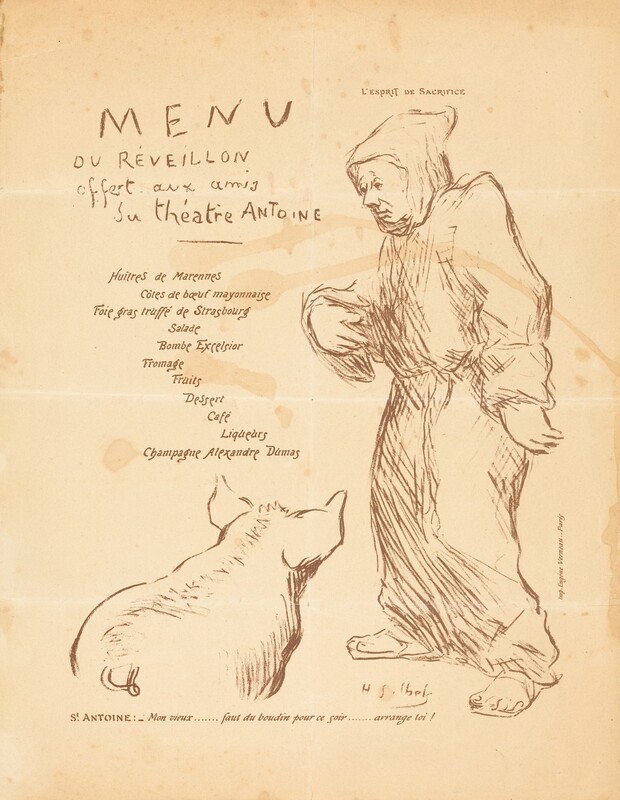 L'ESPRIT DE SACRIFICE
MENU
DU RÉVEILLON
offert aux amis
du théatre ANTOINE
Huîtres de Marennes
Côtes de bœuf mayonnaise
Foie gras truffé de Strasbourg
Salade
Bombe Excelsior
Fromage
Fruits
Dessert
Café
Liqueurs
Champagne Alexandre Dumas
Imp. Eugène Verneau._Paris
St ANTOINE:_ Mon vieux....... faut du boudin pour ce soir....... arrange toi !